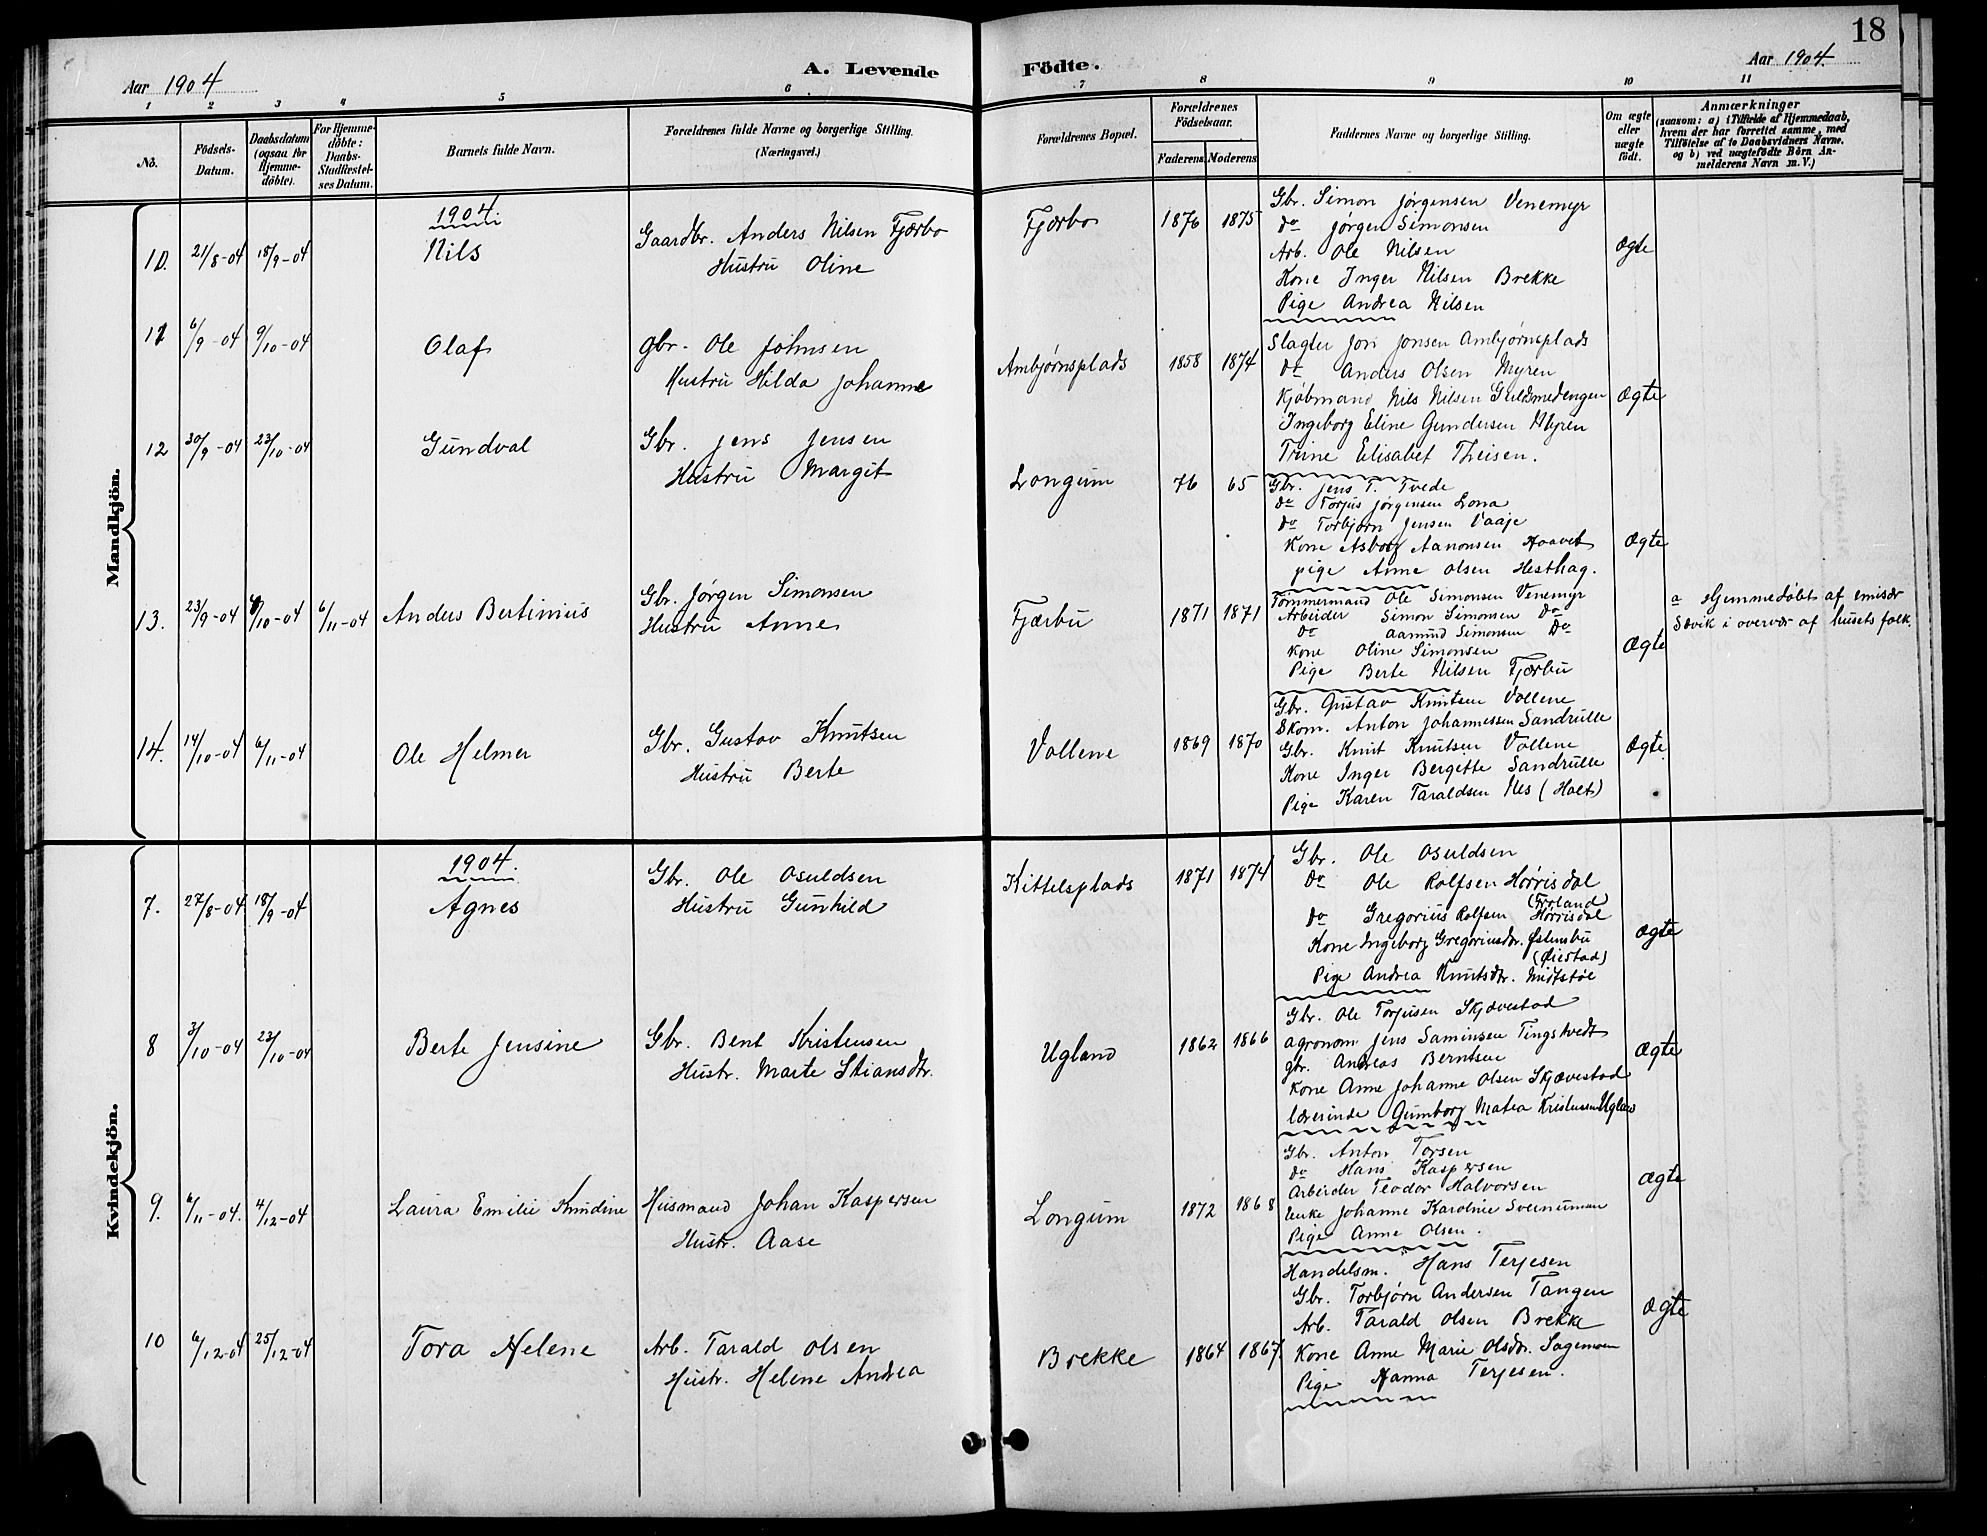 18
Aar 1904
A. Levende Födte.
Aar 1904.
1 2 3 4 5 6 7 8 9 10 11
No.
Födsels-Datum.
Daabsdatum (ogsaa for Hjemme-döbte).
For Hjemme-döbte: Daabs-Stadfæstel-ses Datum.
Barnets fulde Navn.
Forældrenes fulde Navne og borgerlige Stilling. (Næringsvei.)
Forældrenes Bopæl.
Forældrenes Födselsaar.
Faderens. Moderens.
Faddernes Navne og borgerlige Stilling.
Om ægte eller uægte födt.
Anmærkninger
(saasom: a) i Tilfælde af Hjemmedaab, hvem der har forrettet samme, med Tilföielse af to Daabsvidners Navne, og b) ved uægtefödte Börn Anmelderens Navn m. V.)
Mandkjön.
1904
10. 21/8-04 18/9-04 Nils
Gaardbr. Anders Nilsen Fjærbo
Hustru Oline
Fjærbo 1876 1875
Gbr. Simon Jørgensen Venemyr
do Jørgen Simonsen
Arb. Ole Nilsen
Kone Inger Nilsen Brekke
Pige Andrea Nilsen
Ægte
11 6/9-04 9/10-04 Olaf
gbr. Ole Johnsen
Hustru Hilda Johanne
Ambjørnsplads 1858 1874
Slagter Jon Jonsen Ambjørnsplads
do Anders Olsen Myren
Kjøbmand Nils Nilsen Guldsmedengen
Ingeborg Eline Gundersen Myren
Trine Elisabet Theisen.
Ægte
12 30/9-04 23/10-04 Gundval
Gbr. Jens Jensen
Hustru Margit
Longum 76 65
Gbr. Jens T. Tvede
do Torjus Jørgensen Lona
do Torbjørn Jensen Vaaje
Kone Asborg Aanonsen Haavet
pige Anne Olsen Hesthag.
Ægte
13. 23/9-04 /10-04 6/11-04 Anders Bertinius
Gbr. Jørgen Simonsen
Hustru Anne
Fjærbu 1871 1871
Tømmermand Ole Simonsen Venemyr
Arbeider Simon Simonsen do
do Aamund Simonsen do
Kone Oline Simonsen
Pige Berte Nilsen Fjærbu
Ægte
a Hjemmedøbt af emisær
Sævik i overvær af husets folk.
14. 14/10-04 6/11-04 Ole Helmer
Gbr. Gustav Knutsen
Hustru Berte
Vollene 1869 1870
Gbr. Gustav Knutsen Vollene
Skom. Anton Johannessen Sandrulle
Gbr. Knut Knutsen Vollene
Kone Inger Bergette Sandrulle
Pige Karen Taraldsen Nes (Holt)
Ægte
Kvindekjön.
1904.
7. 27/8-04 18/9-04 Agnes
Gbr. Ole Osuldsen
Hustru Gunhild
Kittelsplads 1871 1874
Gbr. Ole Osuldsen
do Ole Rolfsen Hørrisdal
(Froland)
do Gregorius Rolfsen Hørrisdal
Kone Ingeborg Gregoriusdr. Østensbu
(Øiestad)
Pige Andrea Knutsdtr. Midtstøl
Ægte
8 3/10-04 23/10-04 Berte Jensine
Gbr. Bent Kristensen
Hustr. Marte Stiansdtr.
Ugland 1862 1866
Gbr. Ole Torjusen Skjævestad
agronom Jens Saminsen Tingstvedt
gbr. Andreas Berntsen
Kone Anne Johanne Olsen Skjævestad
lærerinde Gumborg Matea Kristensen Ugland
Ægte
9. 6/11-04. 4/12-04 Laura Emilie Knudine
Husmand Johan Kaspersen
Hustr. Aase
Longum 1872 1868
Gbr. Anton Torsen
do Hans Kaspersen
Arbeider Teodor Halvorsen
Enke Johanne Karoline Svenumsen
Pige Anne Olsen.
Ægte
10 6/12-04 25/12-04 Tora Helene
Arb. Tarald Olsen
Hustr. Helene Andrea
Brekke 1864 1867.
Handelsm. Hans Terjesen
Gbr. Torbjørn Andersen Tangen
Arb. Tarald Olsen Brekke
Kone Anne Marie Olsdr. Sagemoen
Pige Hanna Terjesen.
Ægte